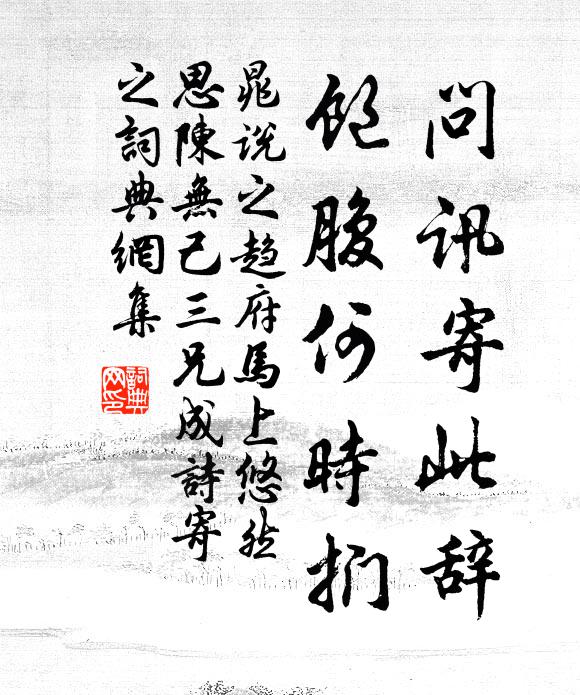 問訊寄此辞
飽腹何時捫
晁說之趙府馬上悠然
思陳無己三兄成詩寄
之詞典網集
詞典
网印